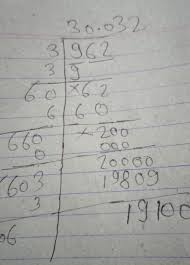 30.032
3 962
3 9
60 ×62
6 60
660 ×200
0 000
603 20000
3 19809
19100
06